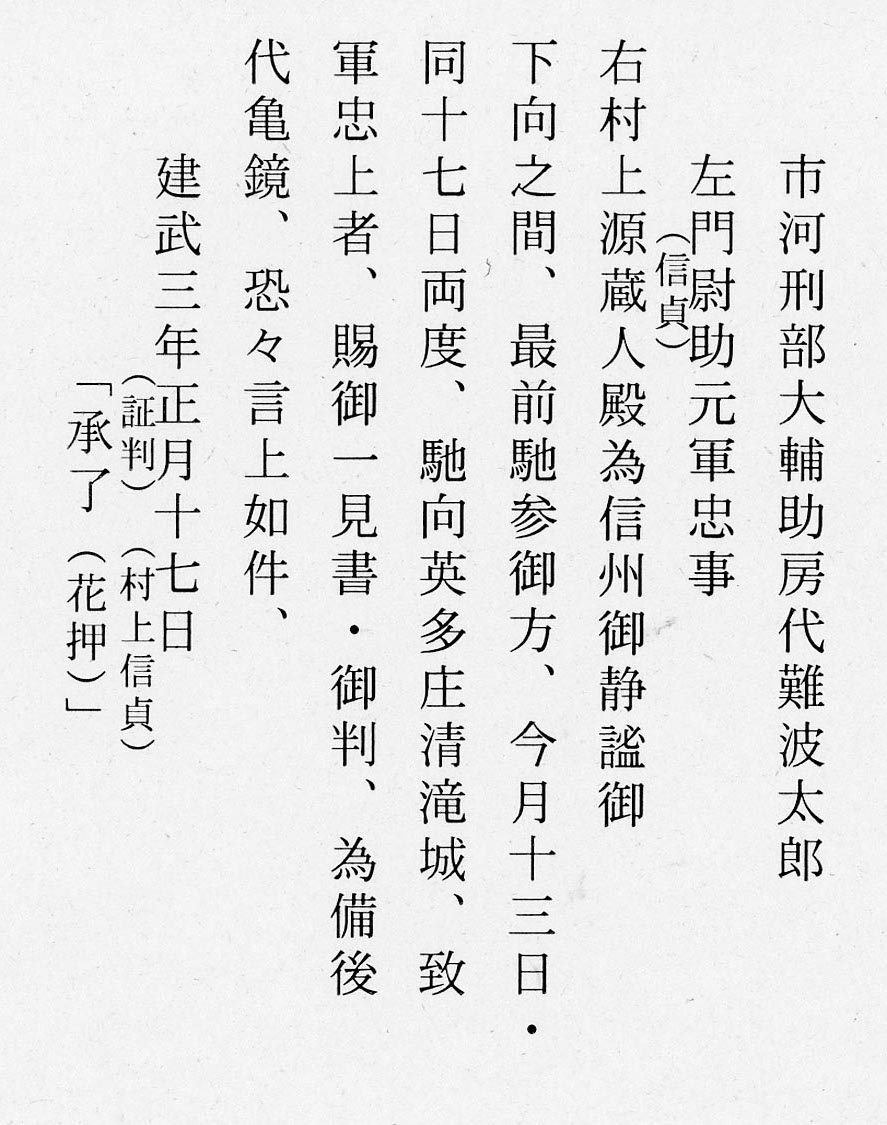 市河刑部大輔助房代難波太郎
左門尉助元軍忠事
（信貞）
右村上源蔵人殿為信州御静謐御
下向之間、最前馳参御方、今月十三日・
同十七日両度、馳向英多庄清滝城、致
軍忠上者、賜御一見書・御判、為備後
代亀鏡、恐々言上如件、
建武三年正月十七日
（証判）（村上信貞）
「承了（花押）」